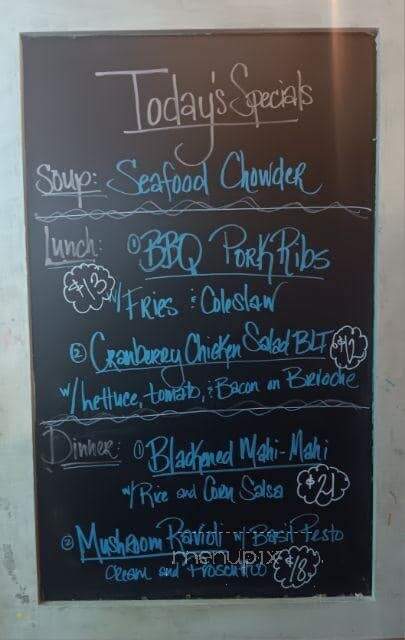 Today's Specials
Soup: Seafood Chowder
Lunch: ① BBQ Pork Ribs
$13 w/ Fries & Coleslaw
② Cranberry Chicken Salad BLT $12
w/ Lettuce, tomato, & Bacon on Brioche
Dinner: ① Blackened Mahi-Mahi
w/ Rice and Corn Salsa $21
② Mushroom Ravioli w/ Basil Pesto
Cream and Prosciutto $18
menupix